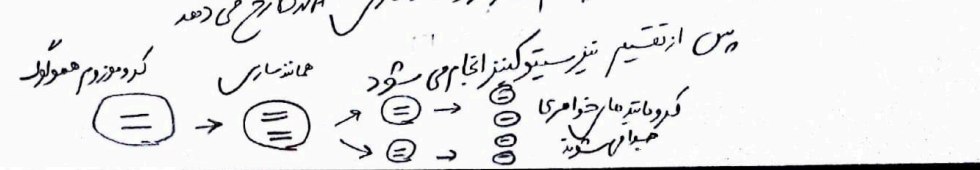 همانندسازی رخ می دهد
پس از تقسیم نیز سیتوکینز انجام می شود
کروموزوم همولوگ
همانندسازی
کروماتید های خواهری
جدا می شوند